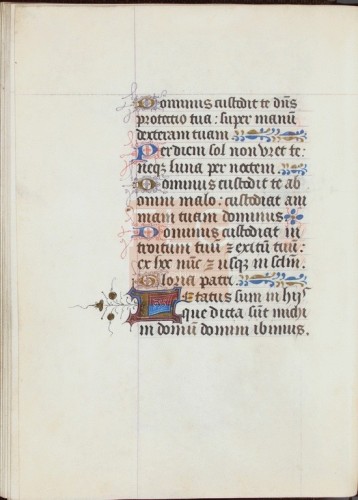 Dominus custodit te dn̄s
protectio tua: super manū
dexteram tuam
Per diem sol non vret te:
neqz luna per noctem.
Dominus custodit te ab
omni malo: custodiat ani
mam tuam dominus
Dominus custodiat in
troitum tuū ⁊ exitū tuū:
ex hoc nūc ⁊ usqz in sc̄lm.
Gloria patri.
Letatus sum in hijs
que dicta sūt michi
in domū domini ibimus.